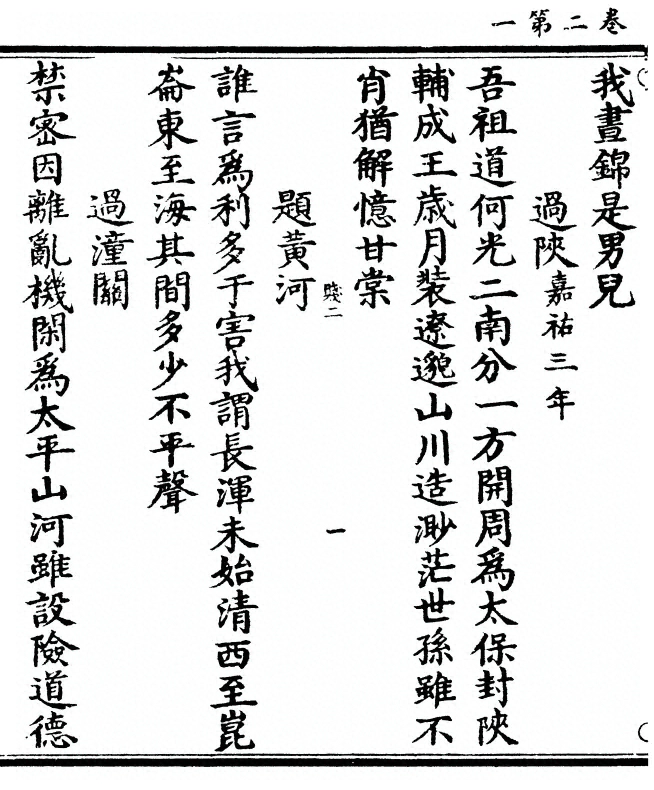 卷二第一
我晝錦是男兒
過陝嘉祐三年
吾祖道何光二南分一方開周爲太保封陝
輔成王歲月裝遼邈山川造渺茫世孫雖不
肖猶解憶甘棠
賤二
一
題黃河
誰言爲利多于害我謂長渾未始清西至崑
崙東至海其間多少不平聲
過潼關
禁密因離亂機閑爲太平山河雖設險道德